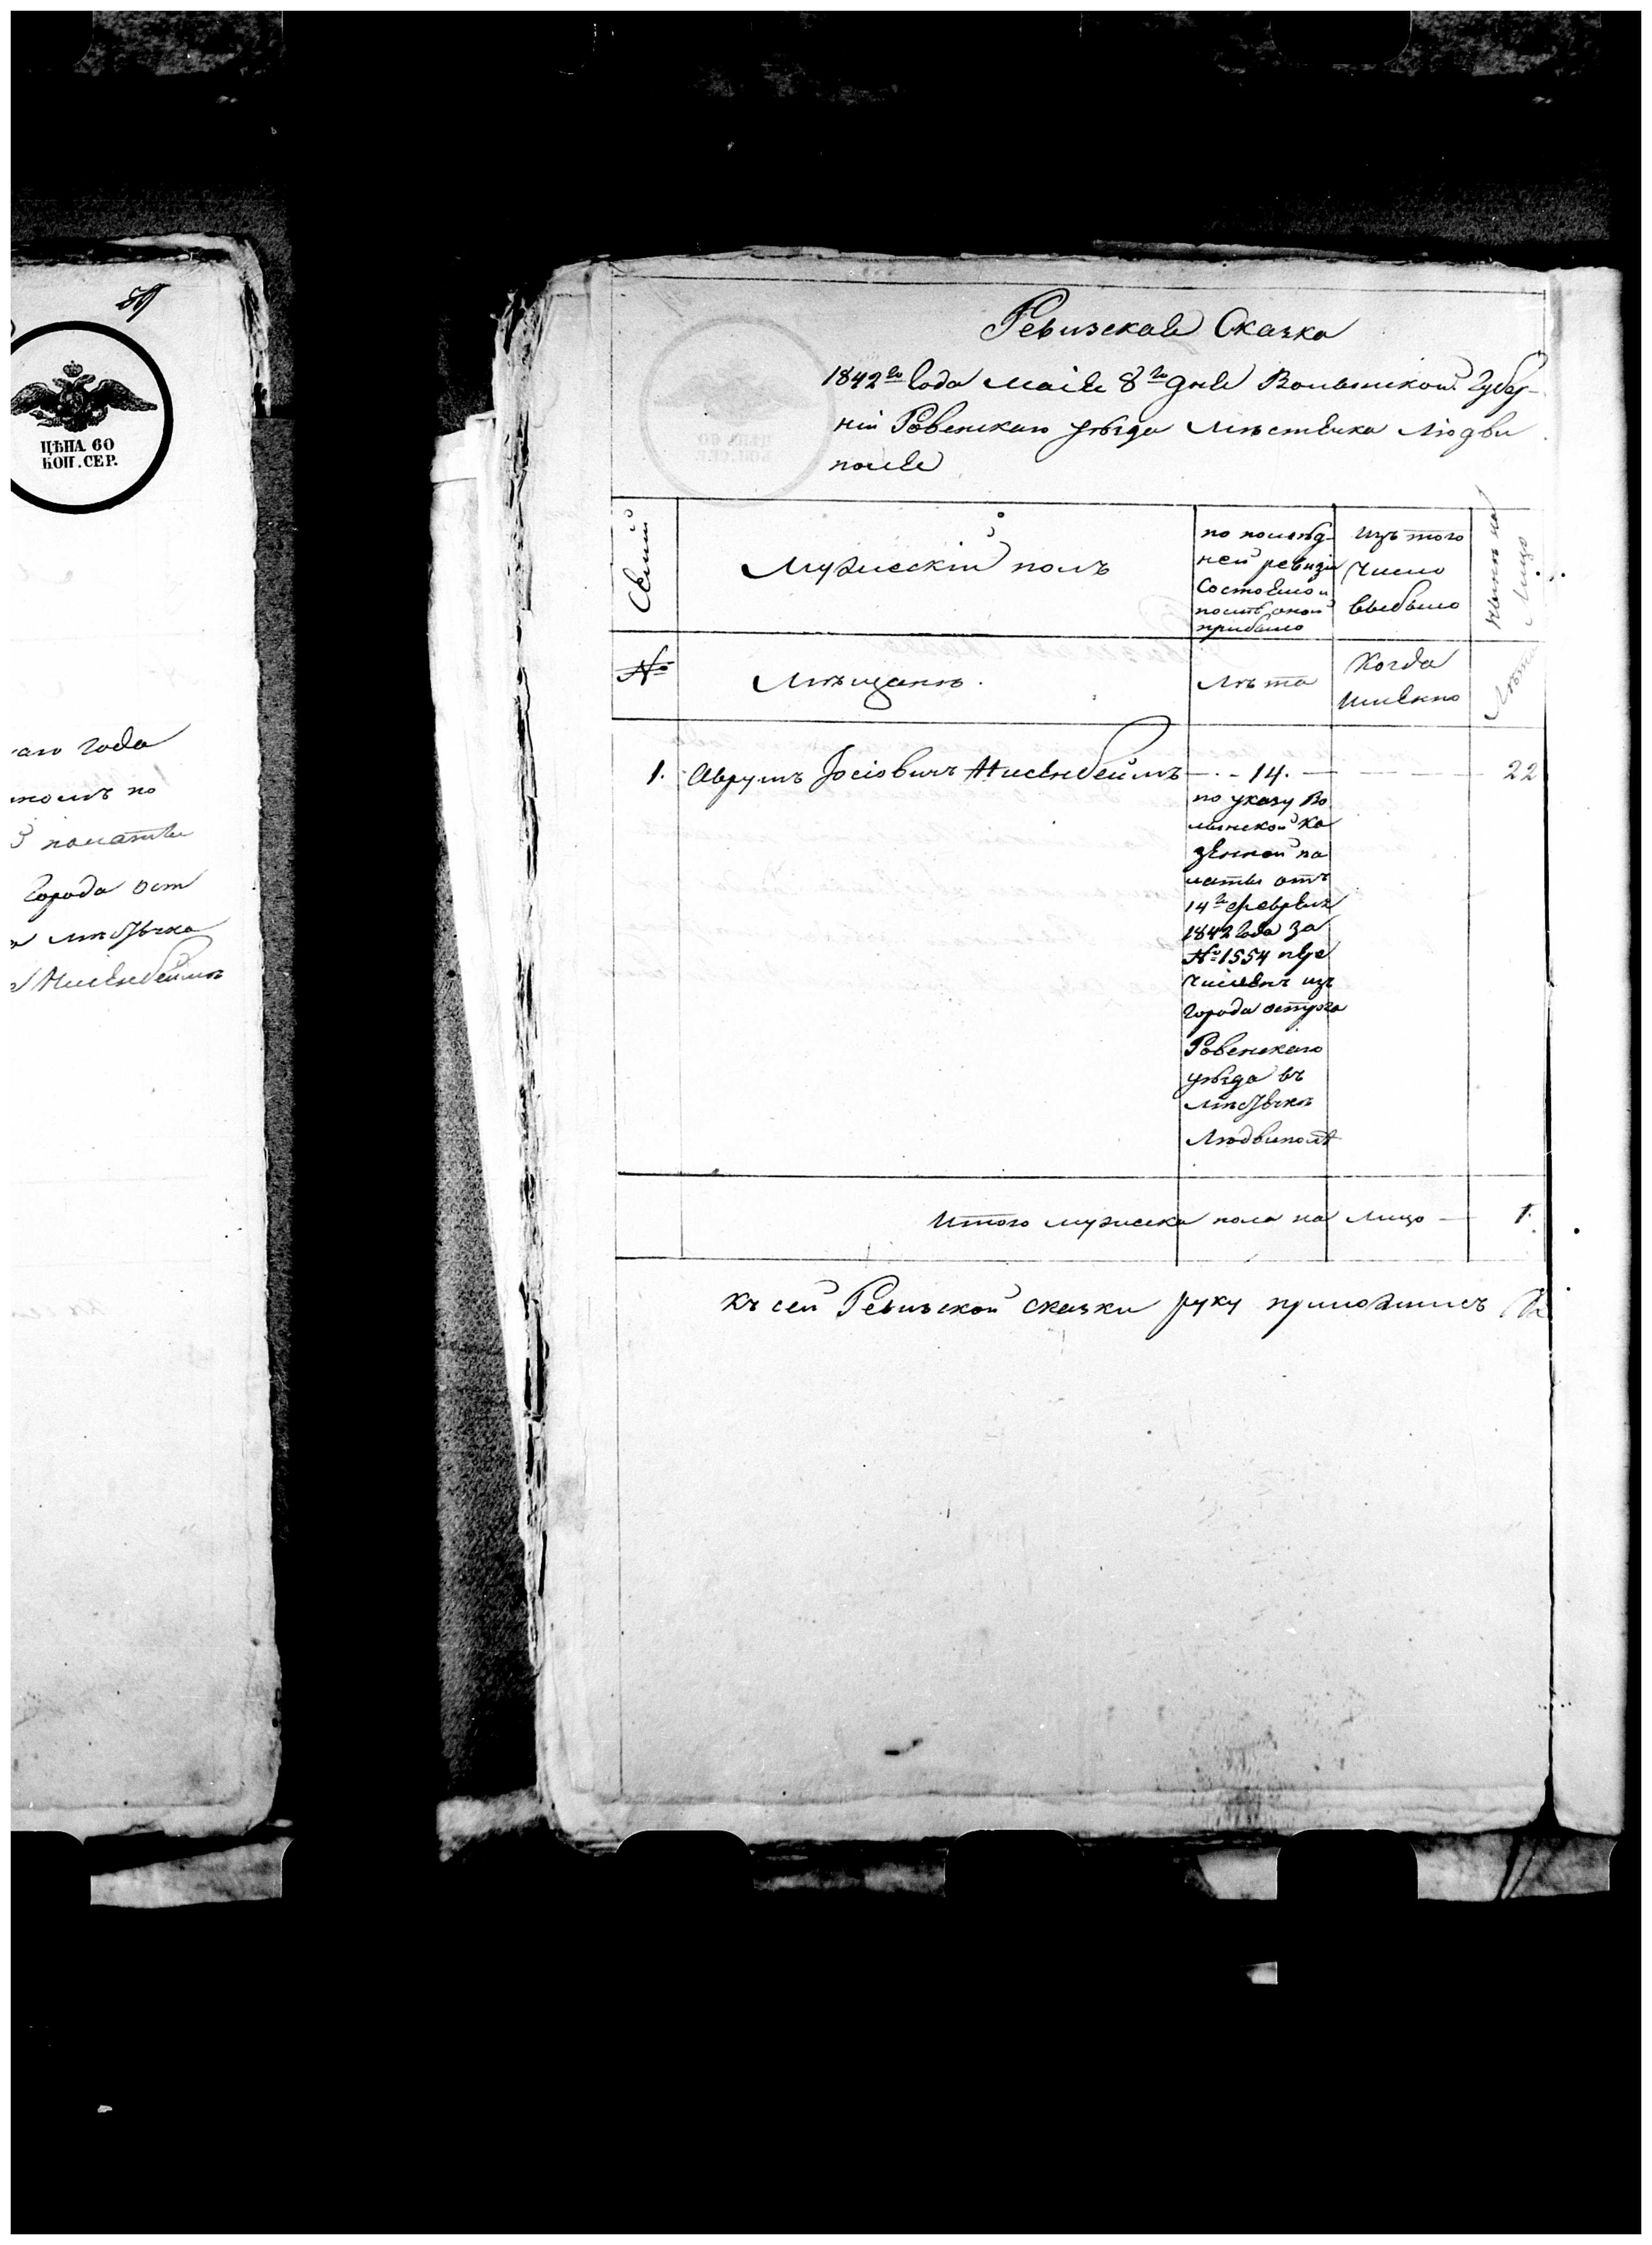 ЦѢНА 60
КОП. СЕР.
года
по
города ост
мѣстѣчка
Ревизская Сказка
1842го года маія 8го дня Волынской Губер-
ніи Ровенскаго уѣзда мѣстѣчка Людви
поля
Семьи
Мужескій полъ
по послѣд-
ней ревизіи
состояло и
послѣ оной
прибыло
изъ того
число
выбыло
нынѣ на
лицо
№
Мѣщане.
лѣта
Когда
имянно
лѣта
1. Аврумъ Іосіовичъ Нисенбеймъ — 14. — 22
по указу Во
лынской Ка
зенной па
латы отъ
14го февраля
1842 года за
№ 1554 пере
численъ изъ
города острога
Ровенскаго
уѣзда въ
мѣстѣчко
Людвиполь
Итого мужеска пола на лицо — 1.
Къ сей Ревизской сказки руку приложилъ